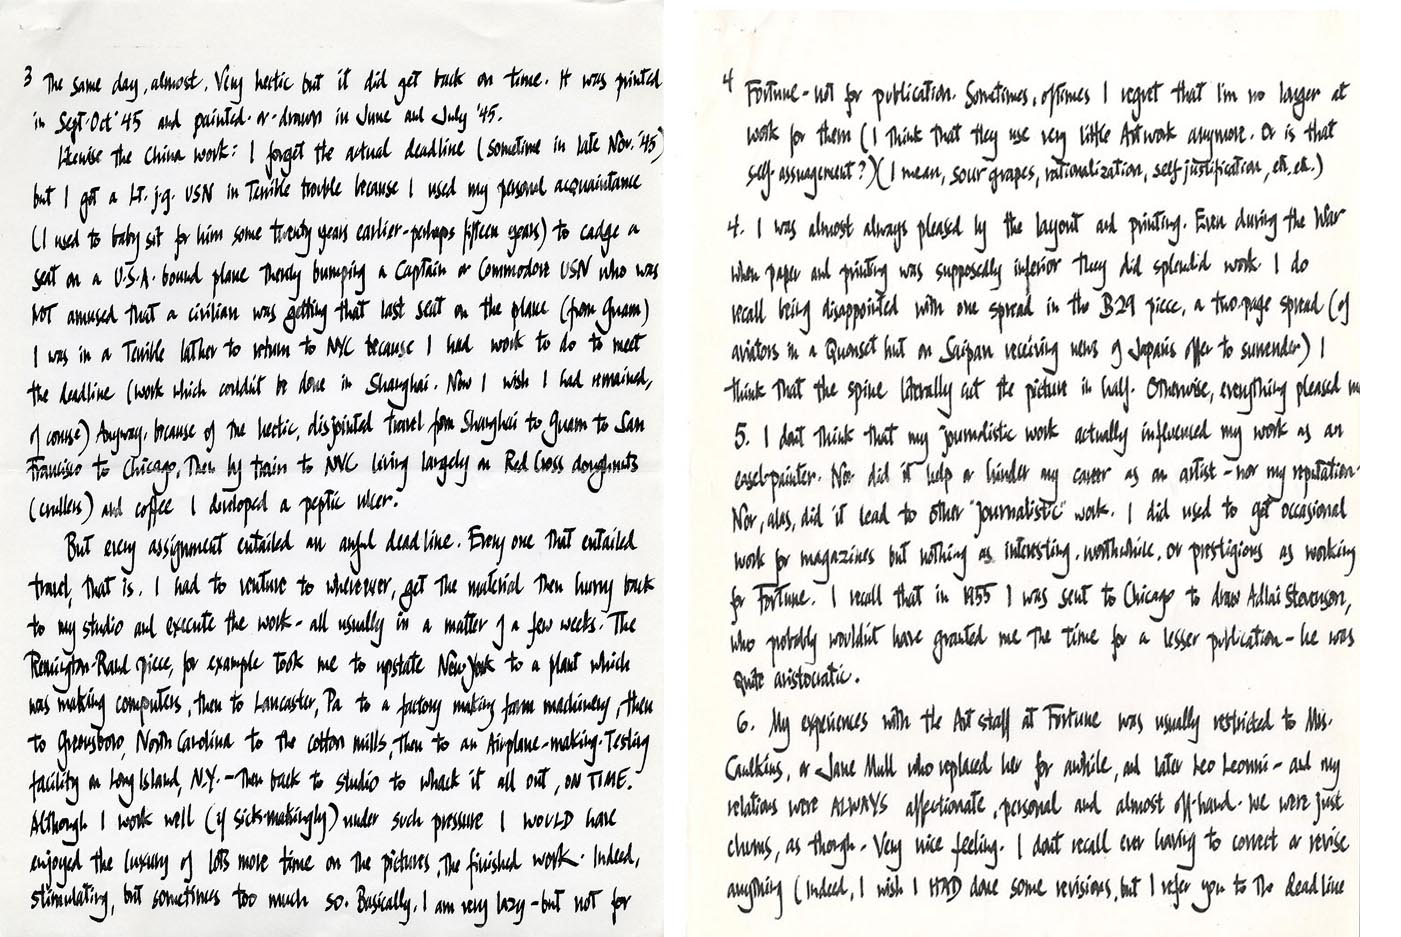 3 The same day, almost. Very hectic but it did get back on time. It was printed
in Sept-Oct '45 and painted-or-drawn in June and July '45.
Likewise the China work: I forget the actual deadline (sometime in late Nov. '45)
but I got a Lt. j.g. USN in Terrible trouble because I used my personal acquaintance
(I used to baby sit for him some twenty years earlier-perhaps fifteen years) to cadge a
seat on a U.S.A. bound plane thereby bumping a Captain or Commodore USN who was
NOT amused that a civilian was getting that last seat on the plane (from Guam)
I was in a Terrible lather to return to NYC because I had work to do to meet
the deadline (work which couldn't be done in Shanghai. Now I wish I had remained,
of course) Anyway, because of the hectic, disjointed travel from Shanghai to Guam to San
Francisco to Chicago, Then by train to NYC living largely on Red Cross doughnuts
(crullers) and coffee I developed a peptic ulcer.
But every assignment entailed an awful deadline. Every one That entailed
travel, that is. I had to venture to wherever, get the material Then hurry back
to my studio and execute the work - all usually in a matter of a few weeks. The
Remington-Rand piece, for example Took me to upstate New York to a plant which
was making computers, then to Lancaster, Pa to a factory making farm machinery, then
to Greensboro, North Carolina to the cotton mills, then to an Airplane-making-Testing
facility on Long Island, N.Y. - Then back to studio to whack it all out, ON TIME.
Although I work well (if sick-makingly) under such pressure I WOULD have
enjoyed the luxury of lots more time on the pictures, the finished work. Indeed,
stimulating, but sometimes too much so. Basically, I am very lazy - but not for
4 Fortune - not for publication. Sometimes, oftimes I regret that I'm no longer at
work for them (I think that they use very little Artwork anymore. Or is that
self-assuagement?) (I mean, sour grapes, rationalization, self-justification, etc, etc.)
4. I was almost always pleased by the layout and printing. Even during the War
when paper and printing was supposedly inferior they did splendid work. I do
recall being disappointed with one spread in the B29 piece, a two-page spread (of
aviators in a Quonset hut on Saipan receiving news of Japan's offer to surrender) I
think That the spine literally cut the picture in half. Otherwise, everything pleased me
5. I don't think that my journalistic work actually influenced my work as an
easel-painter. Nor did it help or hinder my career as an artist - nor my reputation.
Nor, alas, did it lead to other "journalistic" work. I did used to get occasional
work for magazines but nothing as interesting, worthwhile, or prestigious as working
for Fortune. I recall that in 1955 I was sent to Chicago to draw Adlai Stevenson,
who probably wouldn't have granted me the time for a lesser publication - he was
quite aristocratic.
6. My experiences with the Art staff at Fortune was usually restricted to Mrs.
Caulkins, or Jane Mull who replaced her for awhile, and later Leo Leonni - and my
relations were ALWAYS affectionate, personal and almost off-hand. We were just
chums, as though. Very nice feeling. I don't recall ever having to correct or revise
anything (Indeed, I wish I HAD done some revisions, but I refer you to The deadline